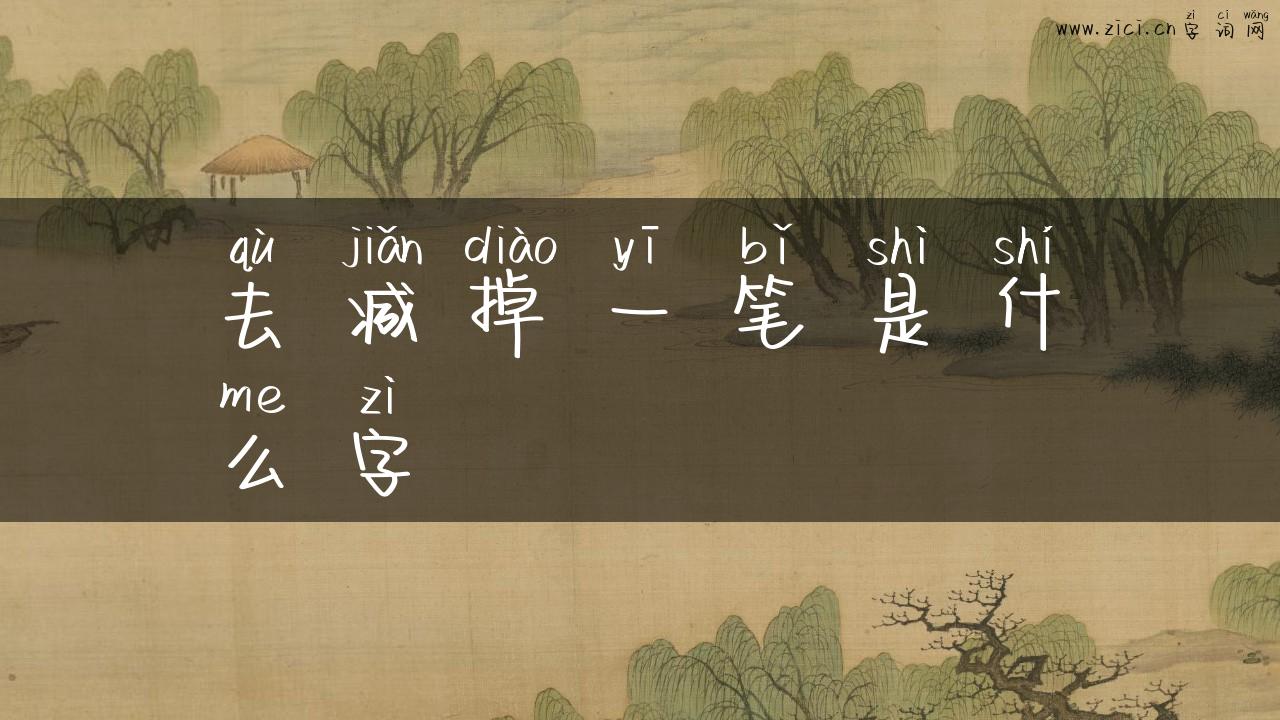 zì cí wǎng
www.zici.cn 字 词 网
qù jiǎn diào yī bǐ shì shí
去 减 掉 一 笔 是 什
me zì
么 字